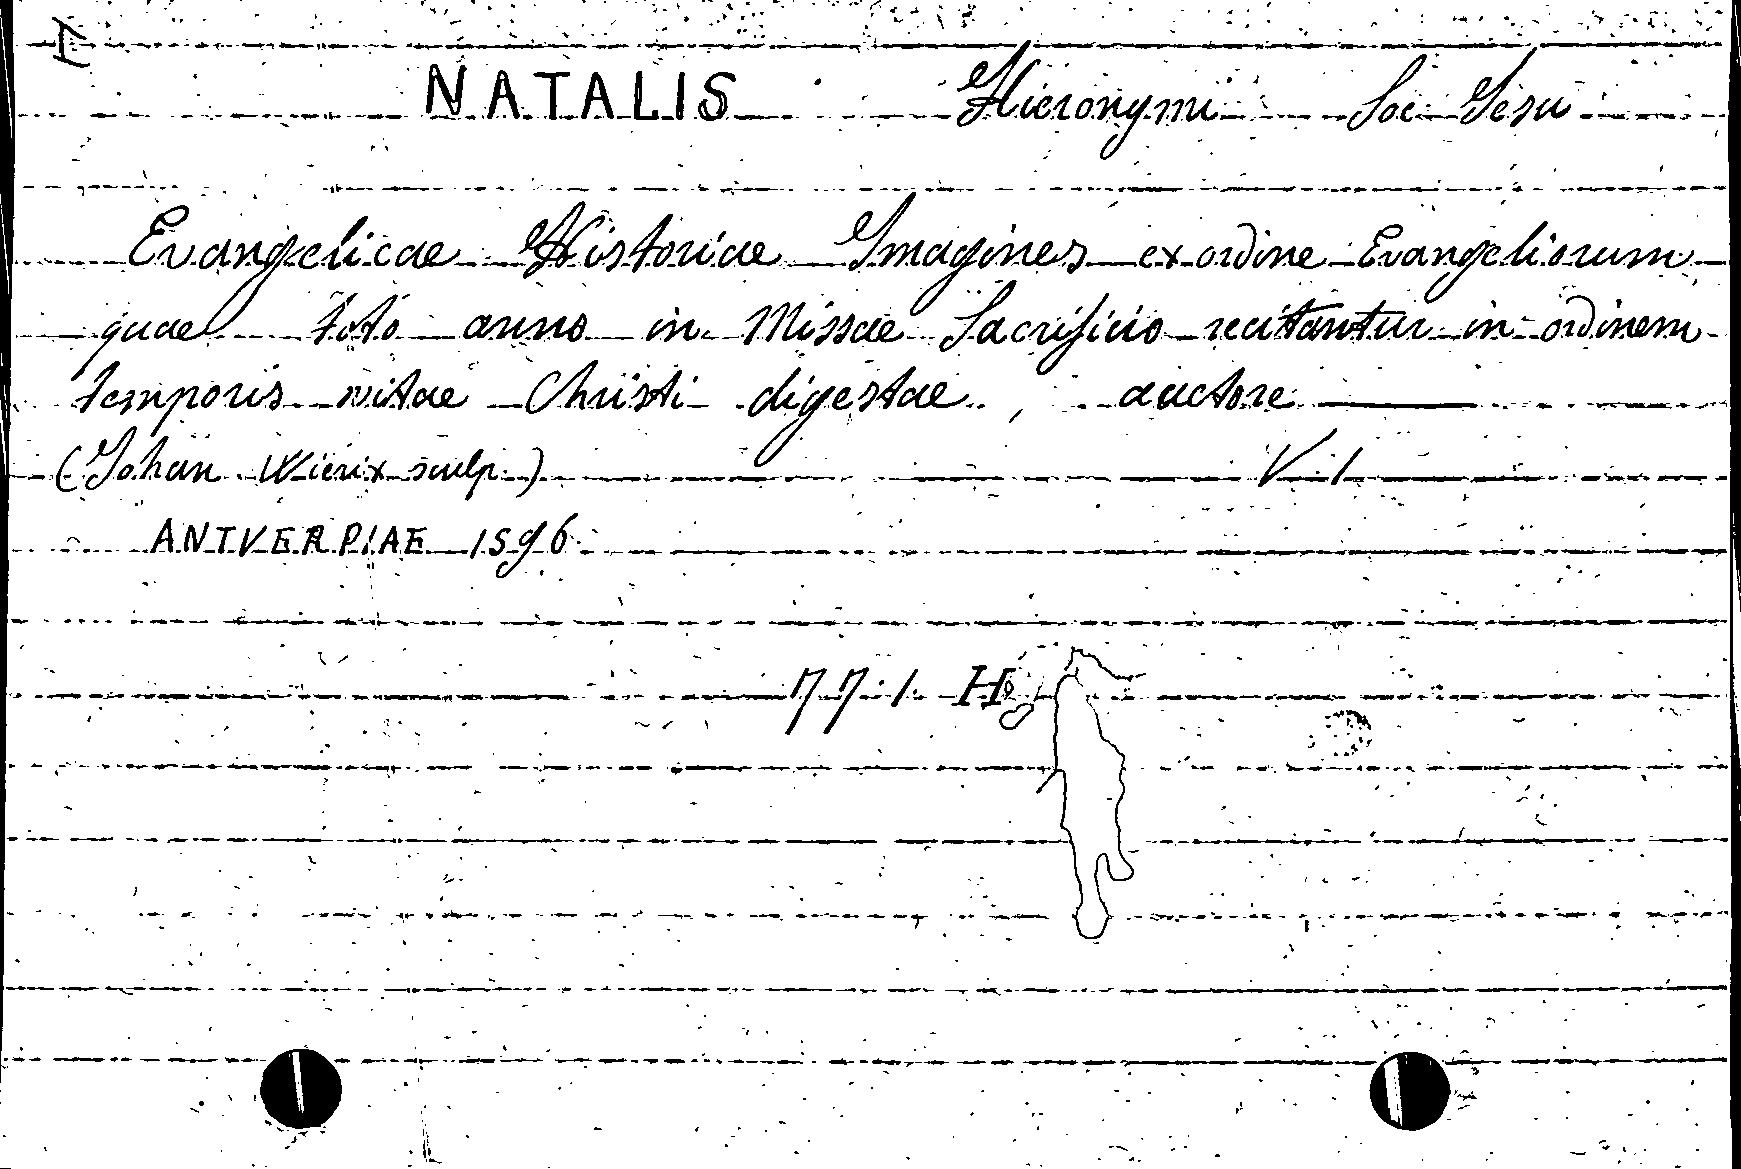 NATALIS Hieronymi Soc Jesu
Evangelicae Historiae Imagines ex ordine Evangeliorum
quae toto anno in Missae Sacrificio recitantur in ordinem
temporis vitae Christi digestae, auctore ——
(Johan Wierix sculp.) V. 1
ANTVERPIAE 1596
77.1. H